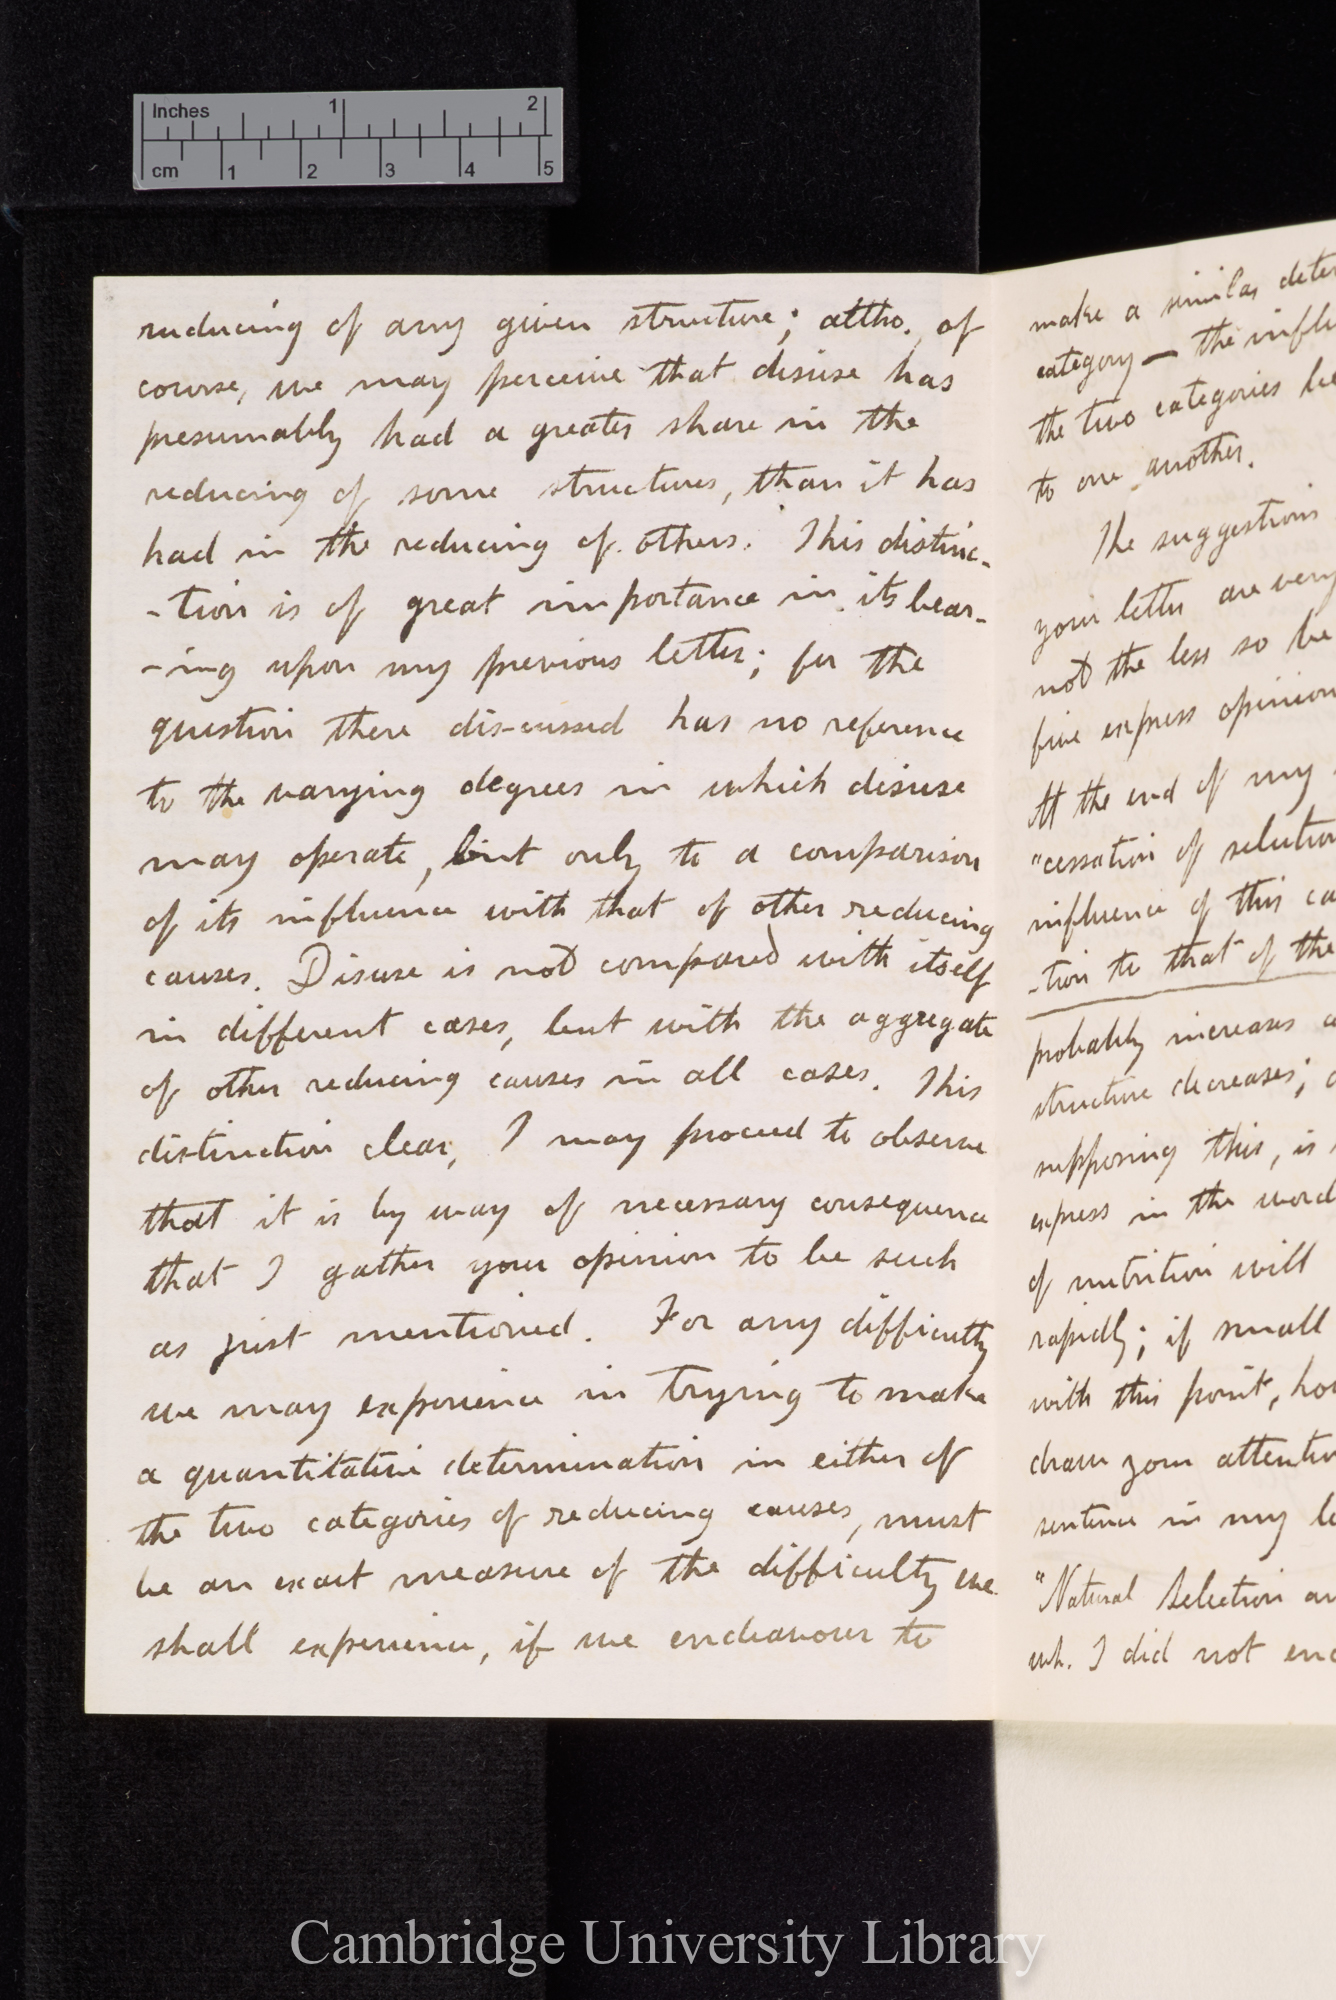 Inches 1 2
cm 1 2 3 4 5
reducing of any given structure; altho, of
course, we may perceive that disuse has
presumably had a greater share in the
reducing of some structures, than it has
had in the reducing of others. This distinc-
-tion is of great importance in its bear-
-ing upon my previous letter; for the
question there discussed has no reference
to the varying degrees in which disuse
may operate, but only to a comparison
of its influence with that of other reducing
causes. Disuse is not compared with itself
in different cases, but with the aggregate
of other reducing causes in all cases. This
distinction clear, I may proceed to observe
that it is by way of necessary consequence
that I gather your opinion to be such
as just mentioned. For any difficulty
we may experience in trying to make
a quantitative determination in either of
the two categories of reducing causes, must
be an exact measure of the difficulty we
shall experience, if we endeavour to
make a similar deter
category — the influ
the two categories be
to one another.
The suggestions
your letter are very
not the less so be
five express opinion
At the end of my
"cessation of selection
influence of this ca
-tion to that of the
probably increases a
structure decreases;
supposing this, is
express in the word
of nutrition will
rapidly; if small
with this point, ho
draw your attentio
sentence in my le
"Natural Selection an
wh. I did not enc
Cambridge University Library